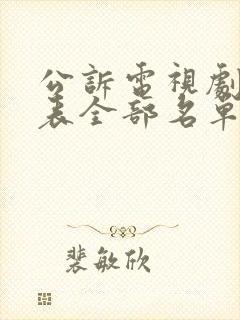 公訴電視劇
表全部名單
裴敏欣